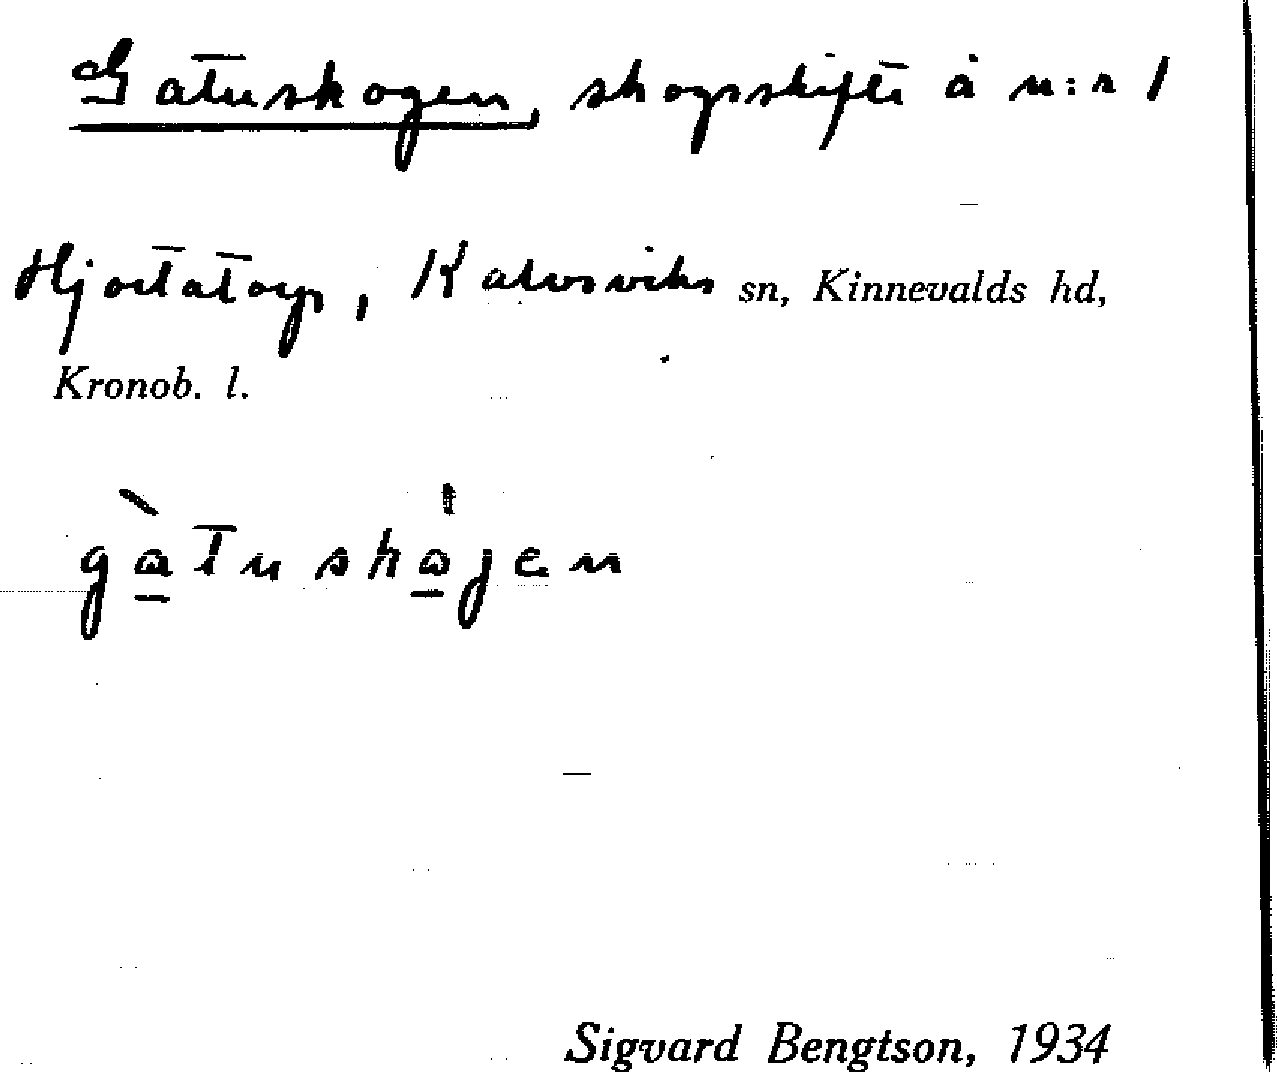 Gatuskogen, skogsskifte å n:r 1
Hjortatorp, Kalvsviks sn, Kinnevalds hd,
Kronob. l.
gàtuskå̍gen
Sigvard Bengtson, 1934